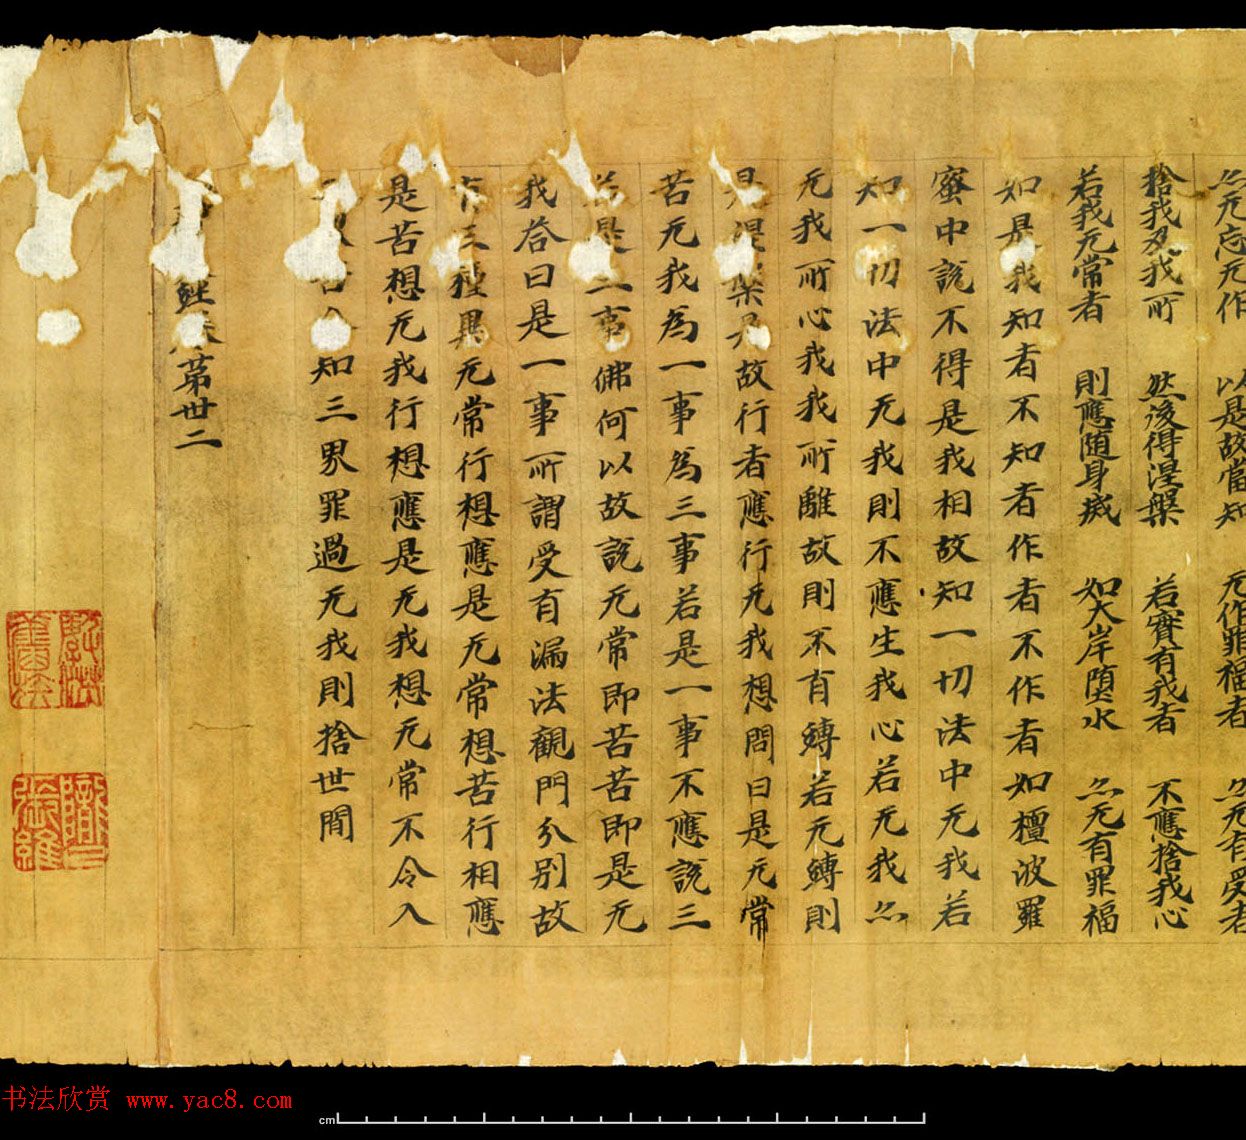 亦无忘无作 以是故當知 无作罪福者 亦无有受者
捨我及我所 然後得涅槃 若實有我者 不應捨我心
若我无常者 則應隨身滅 如大岸墮水 亦无有罪福
如是我知者不知者作者不作者如檀波羅
蜜中說不得是我相故知一切法中无我若
知一切法中无我則不應生我心若无我亦
无我所心我我所離故則不有縛若无縛則
是涅槃是故行者應行无我想問曰是无常
苦无我為一事為三事若是一事不應說三
若是三事佛何以故說无常即苦苦即是无
我答曰是一事所謂受有漏法觀門分別故
有三種異无常行想應是无常想苦行相應
是苦想无我行想應是无我想无常不令入
知三界罪過无我則捨世間
經卷第卅二
书法欣赏 www.yac8.com
cm